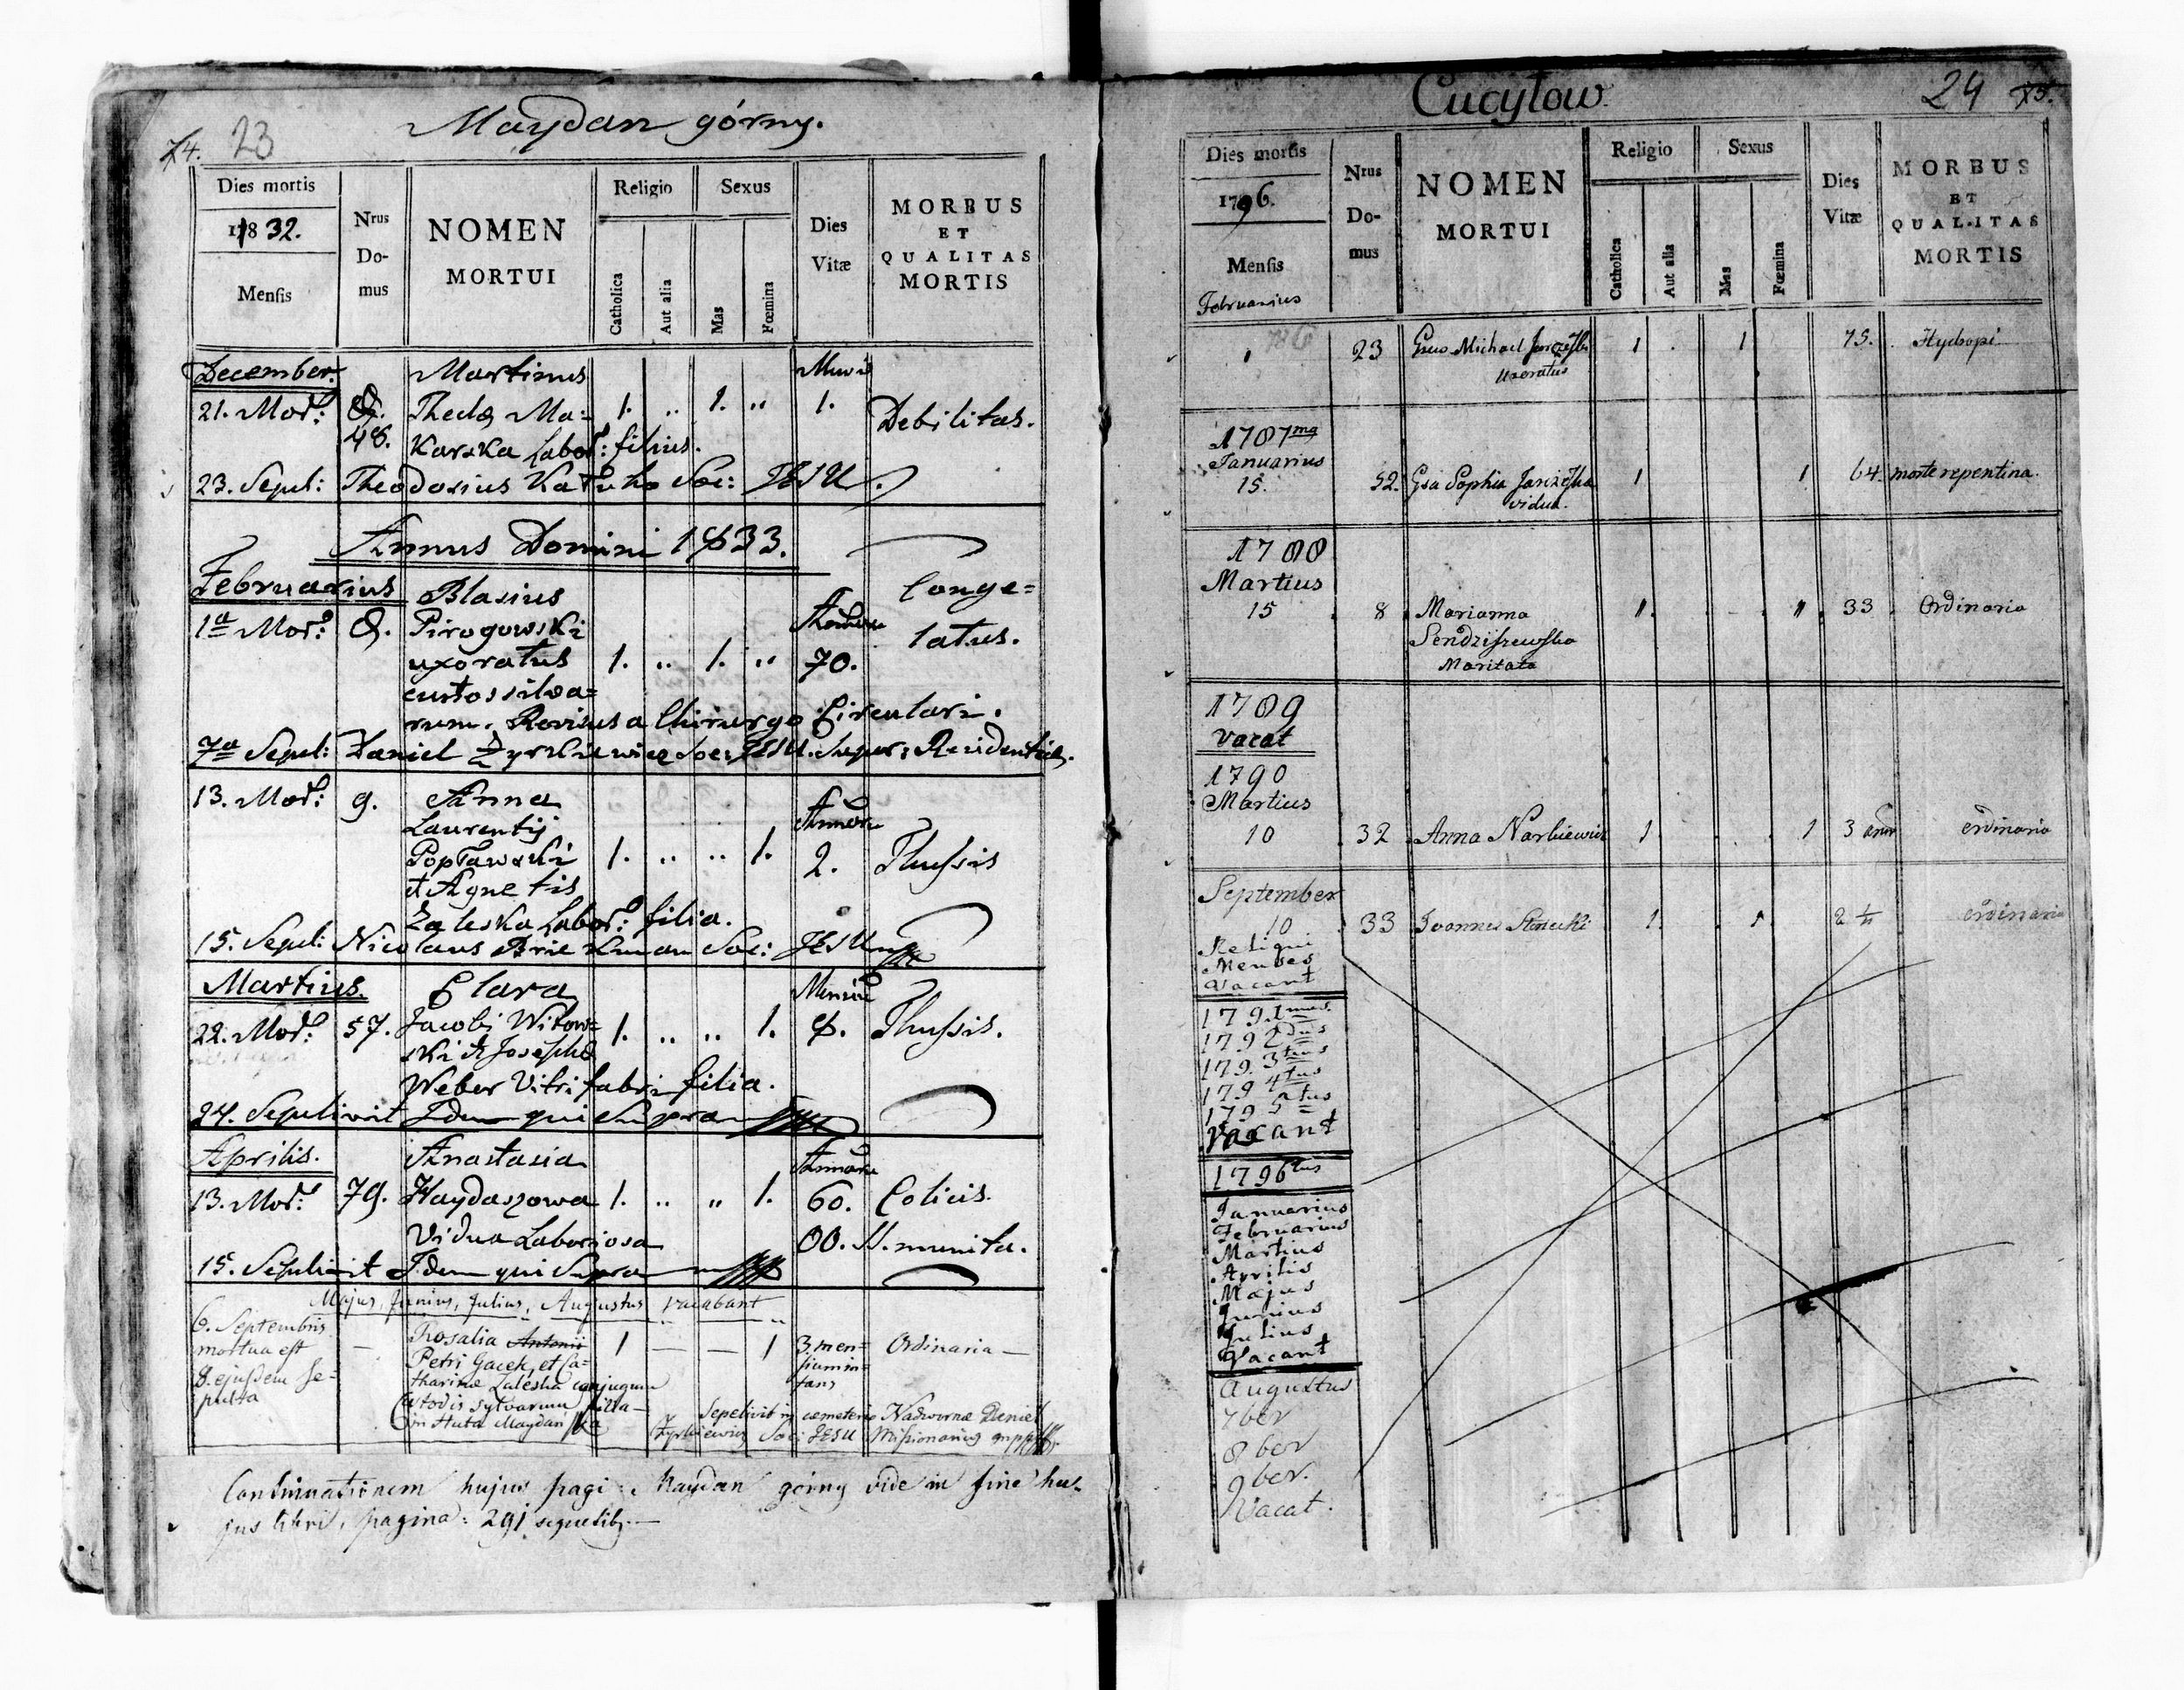 74. 23 Maydan górny.
Dies mortis
1832.
Mensis
Nrus
Do-
mus
NOMEN
MORTUI
Religio
Catholica
Aut alia
Sexus
Mas
Fœmina
Dies
Vitæ
MORBUS
ET
QUALITAS
MORTIS
December. Martinus
21. Mor: 8. Theclæ Ma= 1. .. 1. " 1. Debilitas.
48. Karska Labor: filius.
23. Sepul: Theodosius Soc: JESU.
Annus Domini 1833.
Februarius Blasius Conge=
1a Mor: 8. Pirogowski latus.
uxoratus 1. .. 1. " 70.
custos silva=
rum. Revisus a Chirurgo Circulari.
7a Sepul: Daniel Soc: JESU. Super: Residentiæ.
13. Mor: 9. Anna
Laurentij
Popławski 1. .. .. 1. 2. Thussis
et Agnetis
Zaleska Labor: filia.
15. Sepul: Nicolaus Soc: JESU
Martius. Clara
22. Mor: 57. Jacobi Witow= 1. .. .. 1. 8. Thussis.
ski et Josephæ
Weber Vitri fabri filia.
24. Sepelivit Idem qui Supra
Aprilis. Anastasia
13. Mor: 79. Haydaszowa 1. .. " 1. 60. Colicis.
Vidua Laboriosa OO. SS. munita.
15. Sepelivit Idem qui Supra
Majus, Junius, Julius, Augustus vacabant
6. Septembris Rosalia Antonii 1 — — 1 3. men= Ordinaria —
mortua est — Petri Gacek, et Ca=
8. ejusdem se= tharinæ Zaleska conjugum
pulta Custodis sylvarum filia —
in Huta Maydan
Sepelivit in cœmeterio Nadwornæ Daniel
Soc: JESU Missionarius
Continuationem hujus pagi: Maydan górny vide in fine hu-
jus libri, pagina: 291
Cucytow. 24 75.
Dies mortis
1796.
Mensis
Februarius
Nrus
Do-
mus
NOMEN
MORTUI
Religio
Catholica
Aut alia
Sexus
Mas
Fœmina
Dies
Vitæ
MORBUS
ET
QUALITAS
MORTIS
786
1 23 Michael 1 . 1 75. Hydropi
uxoratus
1787ma
Januarius
15. 52. Gsa Sophia 1 1 64. morte repentina.
vidua.
1788
Martius
15 8 Marianna 1. 1. 33 Ordinaria
Sendziszewska
Maritata
1789
vacat
1790
Martius
10 32 Anna Narkiewicz 1 1 3 ordinaria
September
10 33 Joannes 1. 1 2 ordinaria
Reliqui
Menses
Vacant
1791mus
1792dus
1793tius
1794tus
1795tus
Vacant
1796tus
Januarius
Februarius
Martius
Aprilis
Majus
Junius
Julius
Vacant
Augustus
7ber
8ber
9ber.
Vacat.